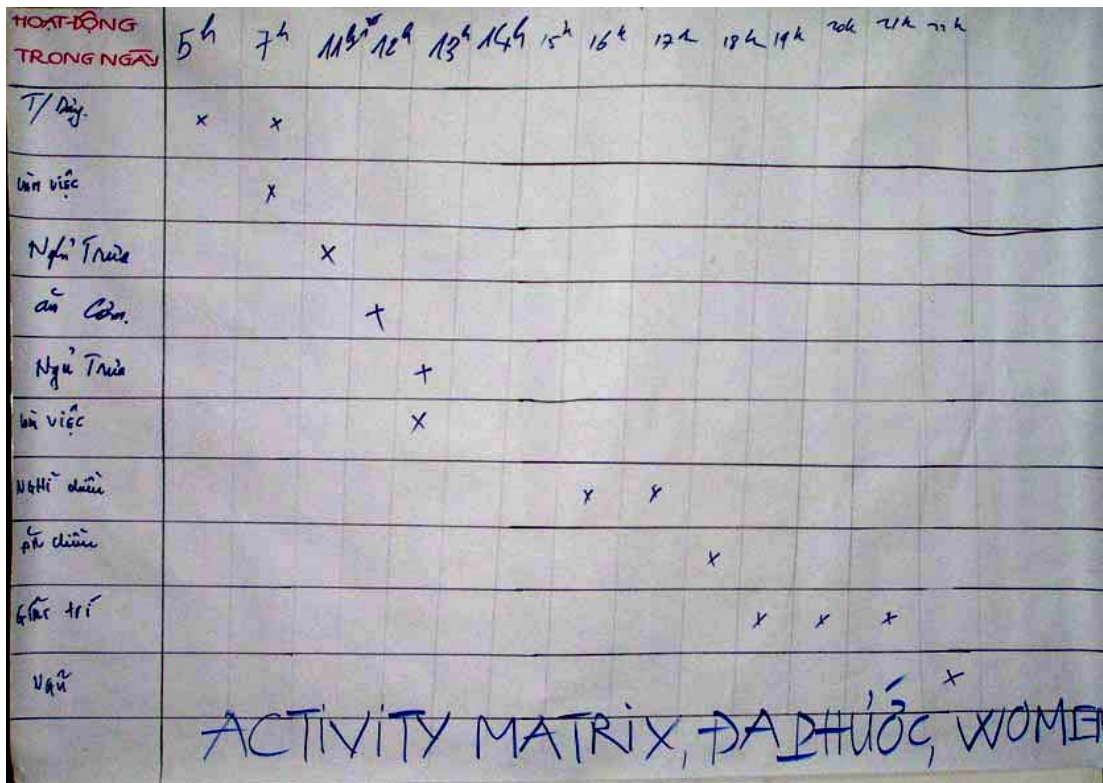 HOẠT ĐỘNG
TRONG NGÀY
5h 7h 11h 12h 13h 14h 15h 16h 17h 18h 19h 20h 21h 22h
T/
x x
làm việc
x
Nghỉ Trưa
x
ăn Cơm.
+
Ngủ Trưa
+
làm việc
x
NGHỈ chiều
x x
ăn chiều
x
Giải trí
x x x
Ngủ
x
ACTIVITY MATRIX, ĐA PHƯỚC, WOMEN